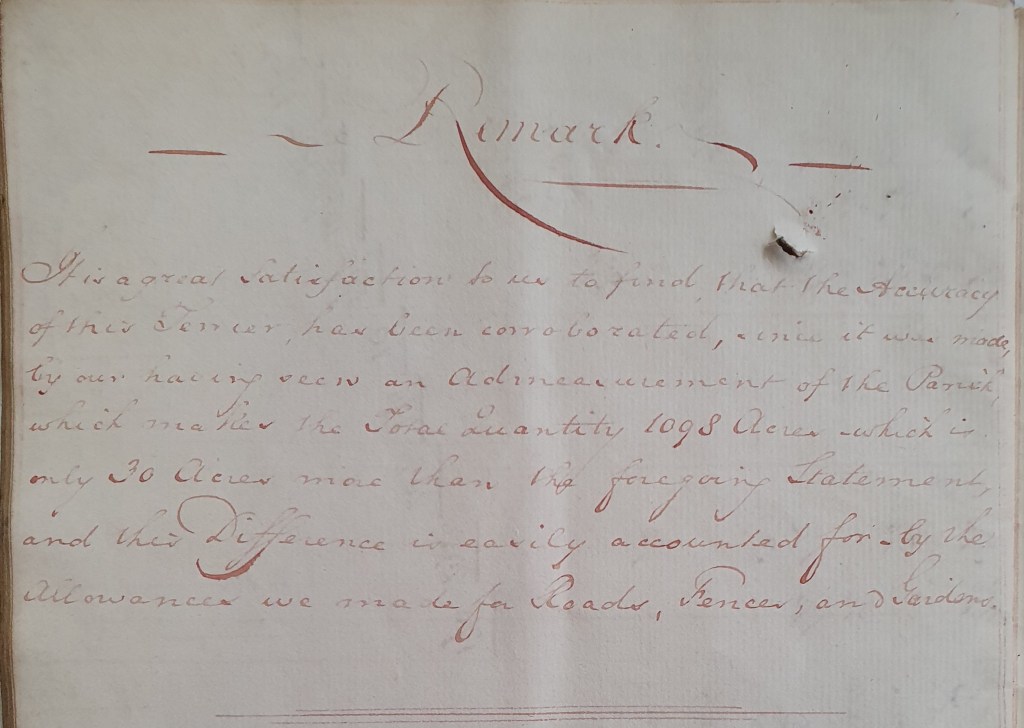 Remark.
It is a great Satisfaction to us to find, that the Accuracy
of this Terrier, has been corroborated, since it was made,
by our having seen an Admeasurement of the Parish,
which makes the Total Quantity 1098 Acres - which is
only 30 Acres more than the foregoing Statement,
and this Difference is easily accounted for - by the
Allowances we made for Roads, Fences, and Gardens.